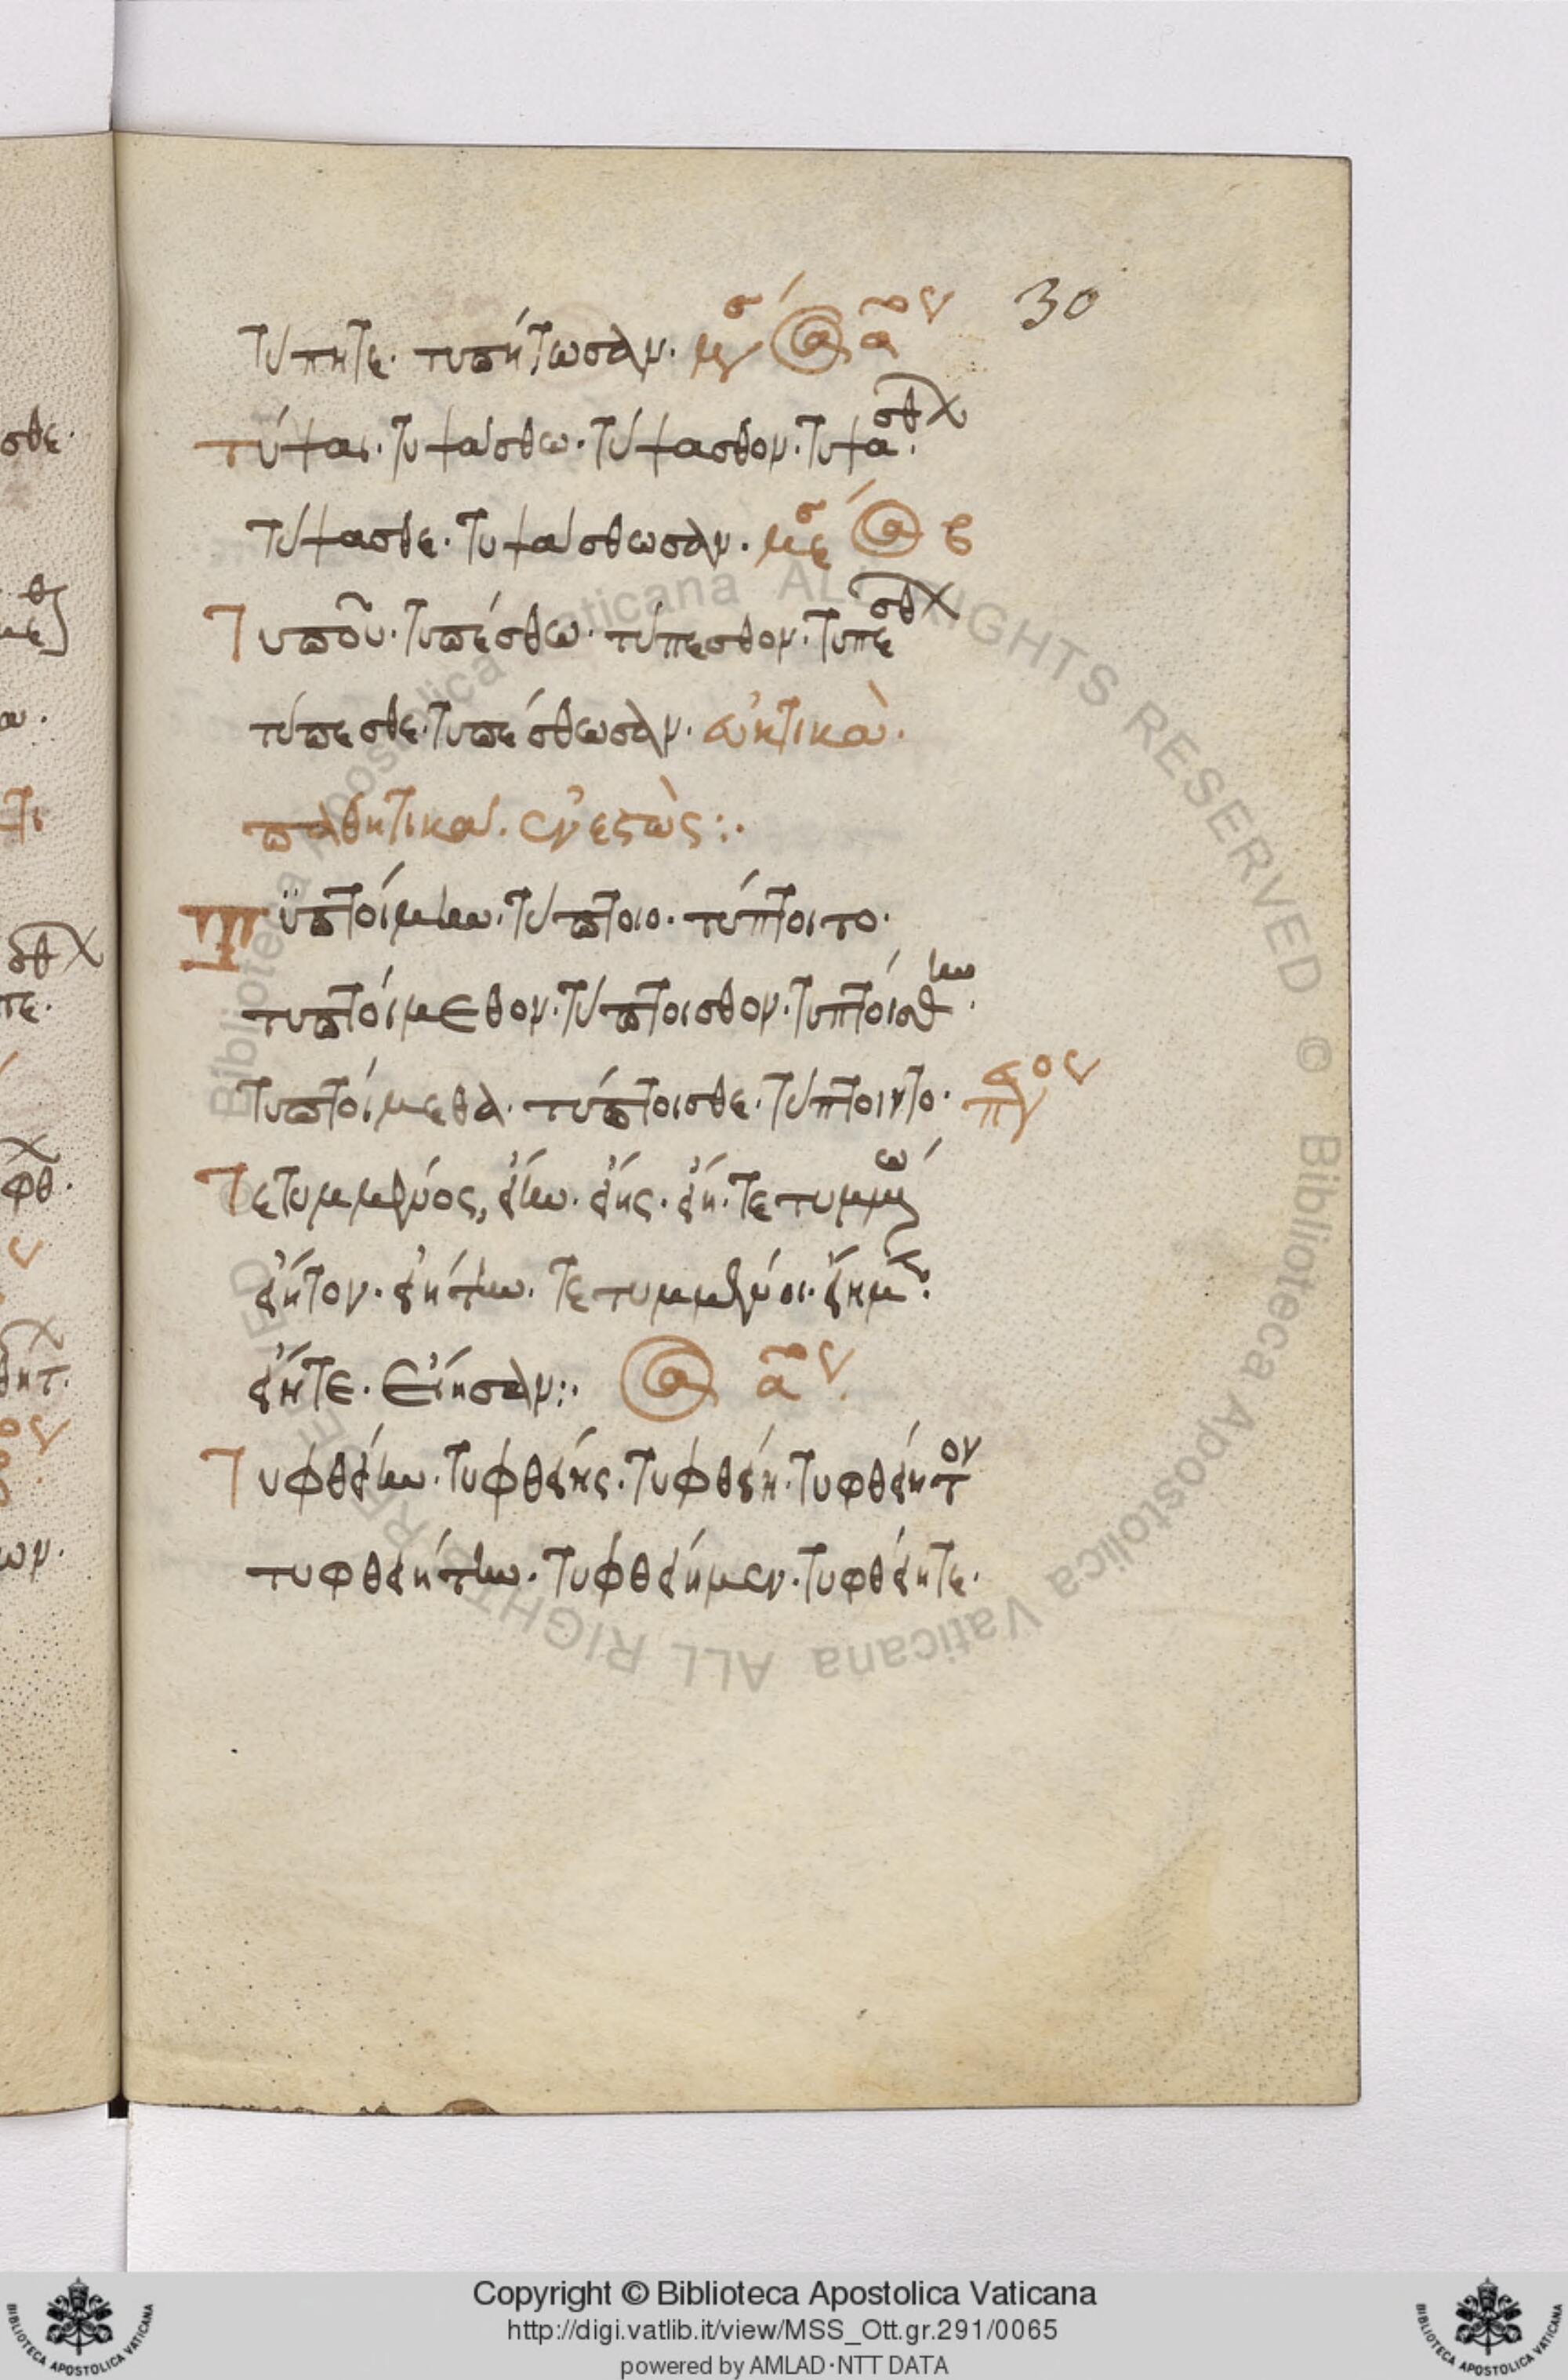 30
τύπητε· τυπήτωσαν· μέσ ἀόρ α
τύψαι· τυψάσθω· τύψασθον· τυψάσθων·
τύψασθε· τυψάσθωσαν· μέσ ἀόρ β
Τυποῦ· τυπέσθω· τύπεσθον· τυπέσθων
τύπεσθε· τυπέσθωσαν· εὐκτικὰ·
παθητικά· ἐνεστὼς:·
Τυπτοίμην· τύπτοιο· τύπτοιτο·
τυπτοίμεθον· τύπτοισθον· τυπτοίσθην·
τυπτοίμεθα· τύπτοισθε· τύπτοιντο·
Τετυμμένος, εἴην· εἴης· εἴη· τετυμμένω
εἴητον· εἰήτην· τετυμμένοι· εἴημεν·
εἴητε· εἴησαν:· ἀόρ α
Τυφθείην· τυφθείης· τυφθείη· τυφθείητον
τυφθειήτην· τυφθείημεν· τυφθείητε·
Copyright © Biblioteca Apostolica Vaticana
http://digi.vatlib.it/view/MSS_Ott.gr.291/0065
powered by AMLAD·NTT DATA